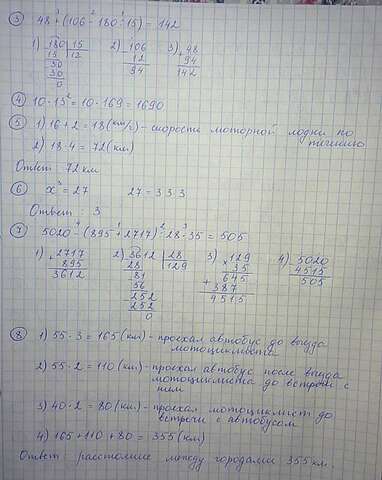 ③ 48+(106-180:15)=142
1) 180 | 15
15 12
30
30
0
2) 106
12
94
3) 48
+ 94
142
④ 10·13²=10·169=1690
⑤ 1) 16+2=18(км/ч)-скорость моторной лодки по
течению
2) 18·4=72(км)
Ответ: 72км
⑥ x³=27 27=3·3·3
Ответ: 3
⑦ 5020-(895+2717):28·35=505
1) 2717
+ 895
3612
2) 3612 | 28
28 129
81
56
252
252
0
3) 129
× 35
645
+ 387
4515
4) 5020
4515
505
⑧ 1) 55·3=165(км)-проехал автобус до выезда
мотоциклиста
2) 55·2=110(км)-проехал автобус после выезда
мотоциклиста до встречи с
ним
3) 40·2=80(км)-проехал мотоциклист до
встречи с автобусом
4) 165+110+80=355(км)
Ответ: расстояние между городами 355км.